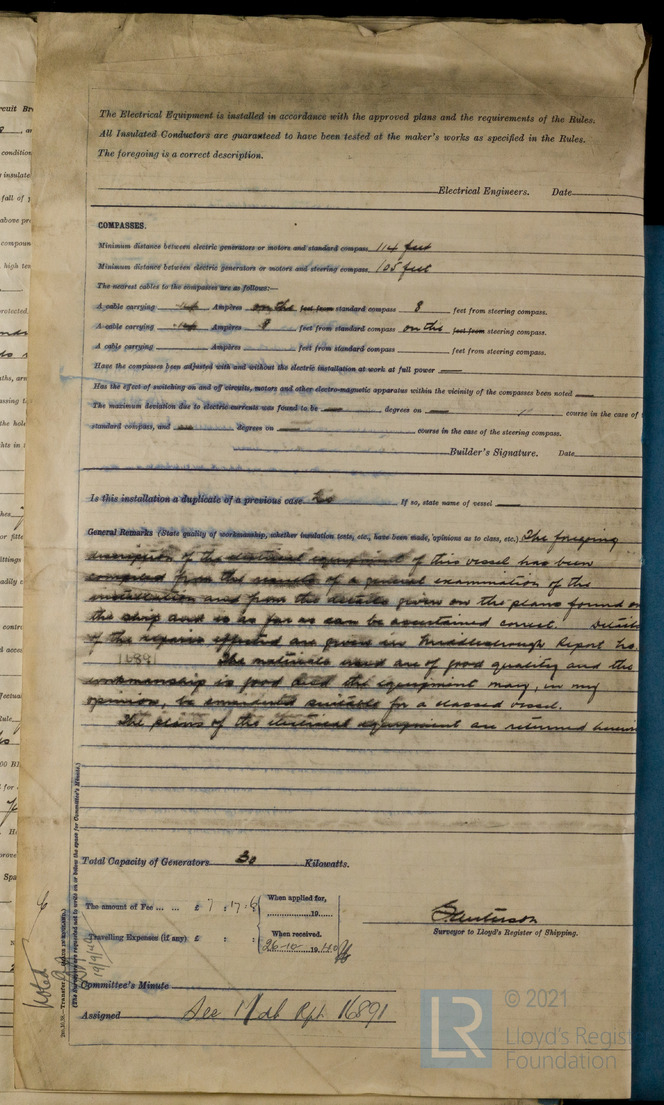 The Electrical Equipment is installed in accordance with the approved plans and the requirements of the Rules.
All Insulated Conductors are guaranteed to have been tested at the maker's works as specified in the Rules.
The foregoing is a correct description.
Electrical Engineers. Date
COMPASSES.
Minimum distance between electric generators or motors and standard compass 114 feet
Minimum distance between electric generators or motors and steering compass 105 feet
The nearest cables to the compasses are as follows:—
A cable carrying Ampères on the feet from standard compass 8 feet from steering compass.
A cable carrying Ampères 8 feet from standard compass on the feet from steering compass.
A cable carrying Ampères feet from standard compass feet from steering compass.
Have the compasses been adjusted with and without the electric installation at work at full power —
Has the effect of switching on and off circuits, motors and other electro-magnetic apparatus within the vicinity of the compasses been noted —
The maximum deviation due to electric currents was found to be — degrees on — course in the case of
standard compass, and — degrees on — course in the case of the steering compass.
Builder's Signature. Date
Is this installation a duplicate of a previous case No If so, state name of vessel —
General Remarks (State quality of workmanship, whether insulation tests, etc., have been made, opinions as to class, etc.) The foregoing
description of the electrical equipment of this vessel has been
compiled from the results of a general examination of the
installation and from the details given on the plans found on
the ship and is as far as can be ascertained correct. Details
of the repairs effected are given in Middlesbrough Report No.
16891 The materials used are of good quality and the
workmanship is good and the equipment may, in my
opinion, be considered suitable for a classed vessel.
The plans of the electrical equipment are returned herein
Total Capacity of Generators 30 Kilowatts.
The amount of Fee ... ... £ 7 : 17 : 6
When applied for,
19
Travelling Expenses (if any) £ : :
When received.
26-10-1940
Surveyor to Lloyd's Register of Shipping.
Committee's Minute
Assigned See Mdb Rpt. 16891
Noted
19/9/44
LR
© 2021
Lloyd's Regist
Foundation